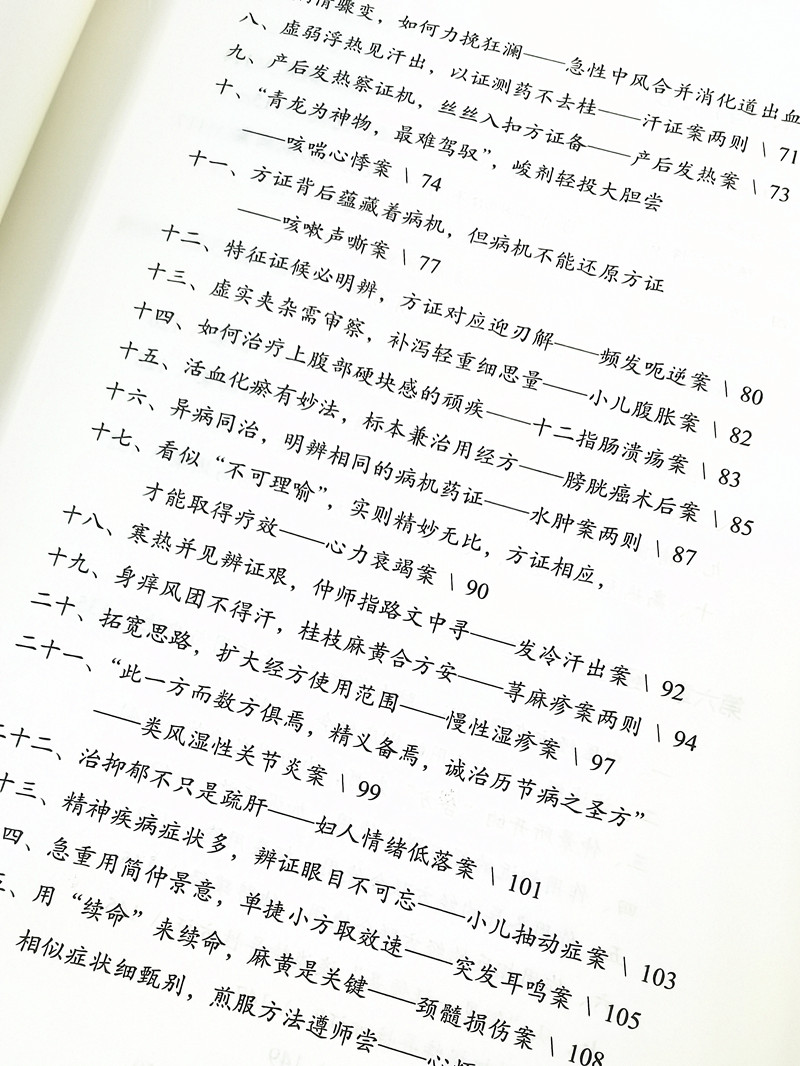 情骤变，如何力挽狂澜——急性中风合并消化道出血
八、虚弱浮热见汗出，以证测药不去桂——汗证案两则 \ 71
九、产后发热察证机，丝丝入扣方证备——产后发热案 \ 73
十、“青龙为神物，最难驾驭”，峻剂轻投大胆尝
——咳喘心悸案 \ 74
十一、方证背后蕴藏着病机，但病机不能还原方证
——咳嗽声嘶案 \ 77
十二、特征证候必明辨，方证对应迎刃解——频发呃逆案 \ 80
十三、虚实夹杂需审察，补泻轻重细思量——小儿腹胀案 \ 82
十四、如何治疗上腹部硬块感的顽疾——十二指肠溃疡案 \ 83
十五、活血化瘀有妙法，标本兼治用经方——膀胱癌术后案 \ 85
十六、异病同治，明辨相同的病机药证——水肿案两则 \ 87
十七、看似“不可理喻”，实则精妙无比，方证相应，
才能取得疗效——心力衰竭案 \ 90
十八、寒热并见辨证艰，仲师指路文中寻——发冷汗出案 \ 92
十九、身痒风团不得汗，桂枝麻黄合方安——荨麻疹案两则 \ 94
二十、拓宽思路，扩大经方使用范围——慢性湿疹案 \ 97
二十一、“此一方而数方俱焉，精义备焉，诚治历节病之圣方”
——类风湿性关节炎案 \ 99
二十二、治抑郁不只是疏肝——妇人情绪低落案 \ 101
十三、精神疾病症状多，辨证眼目不可忘——小儿抽动症案 \ 103
四、急重用简仲景意，单捷小方取效速——突发耳鸣案 \ 105
、用“续命”来续命，麻黄是关键——颈髓损伤案 \ 108
相似症状细甄别，煎服方法遵师尝——心